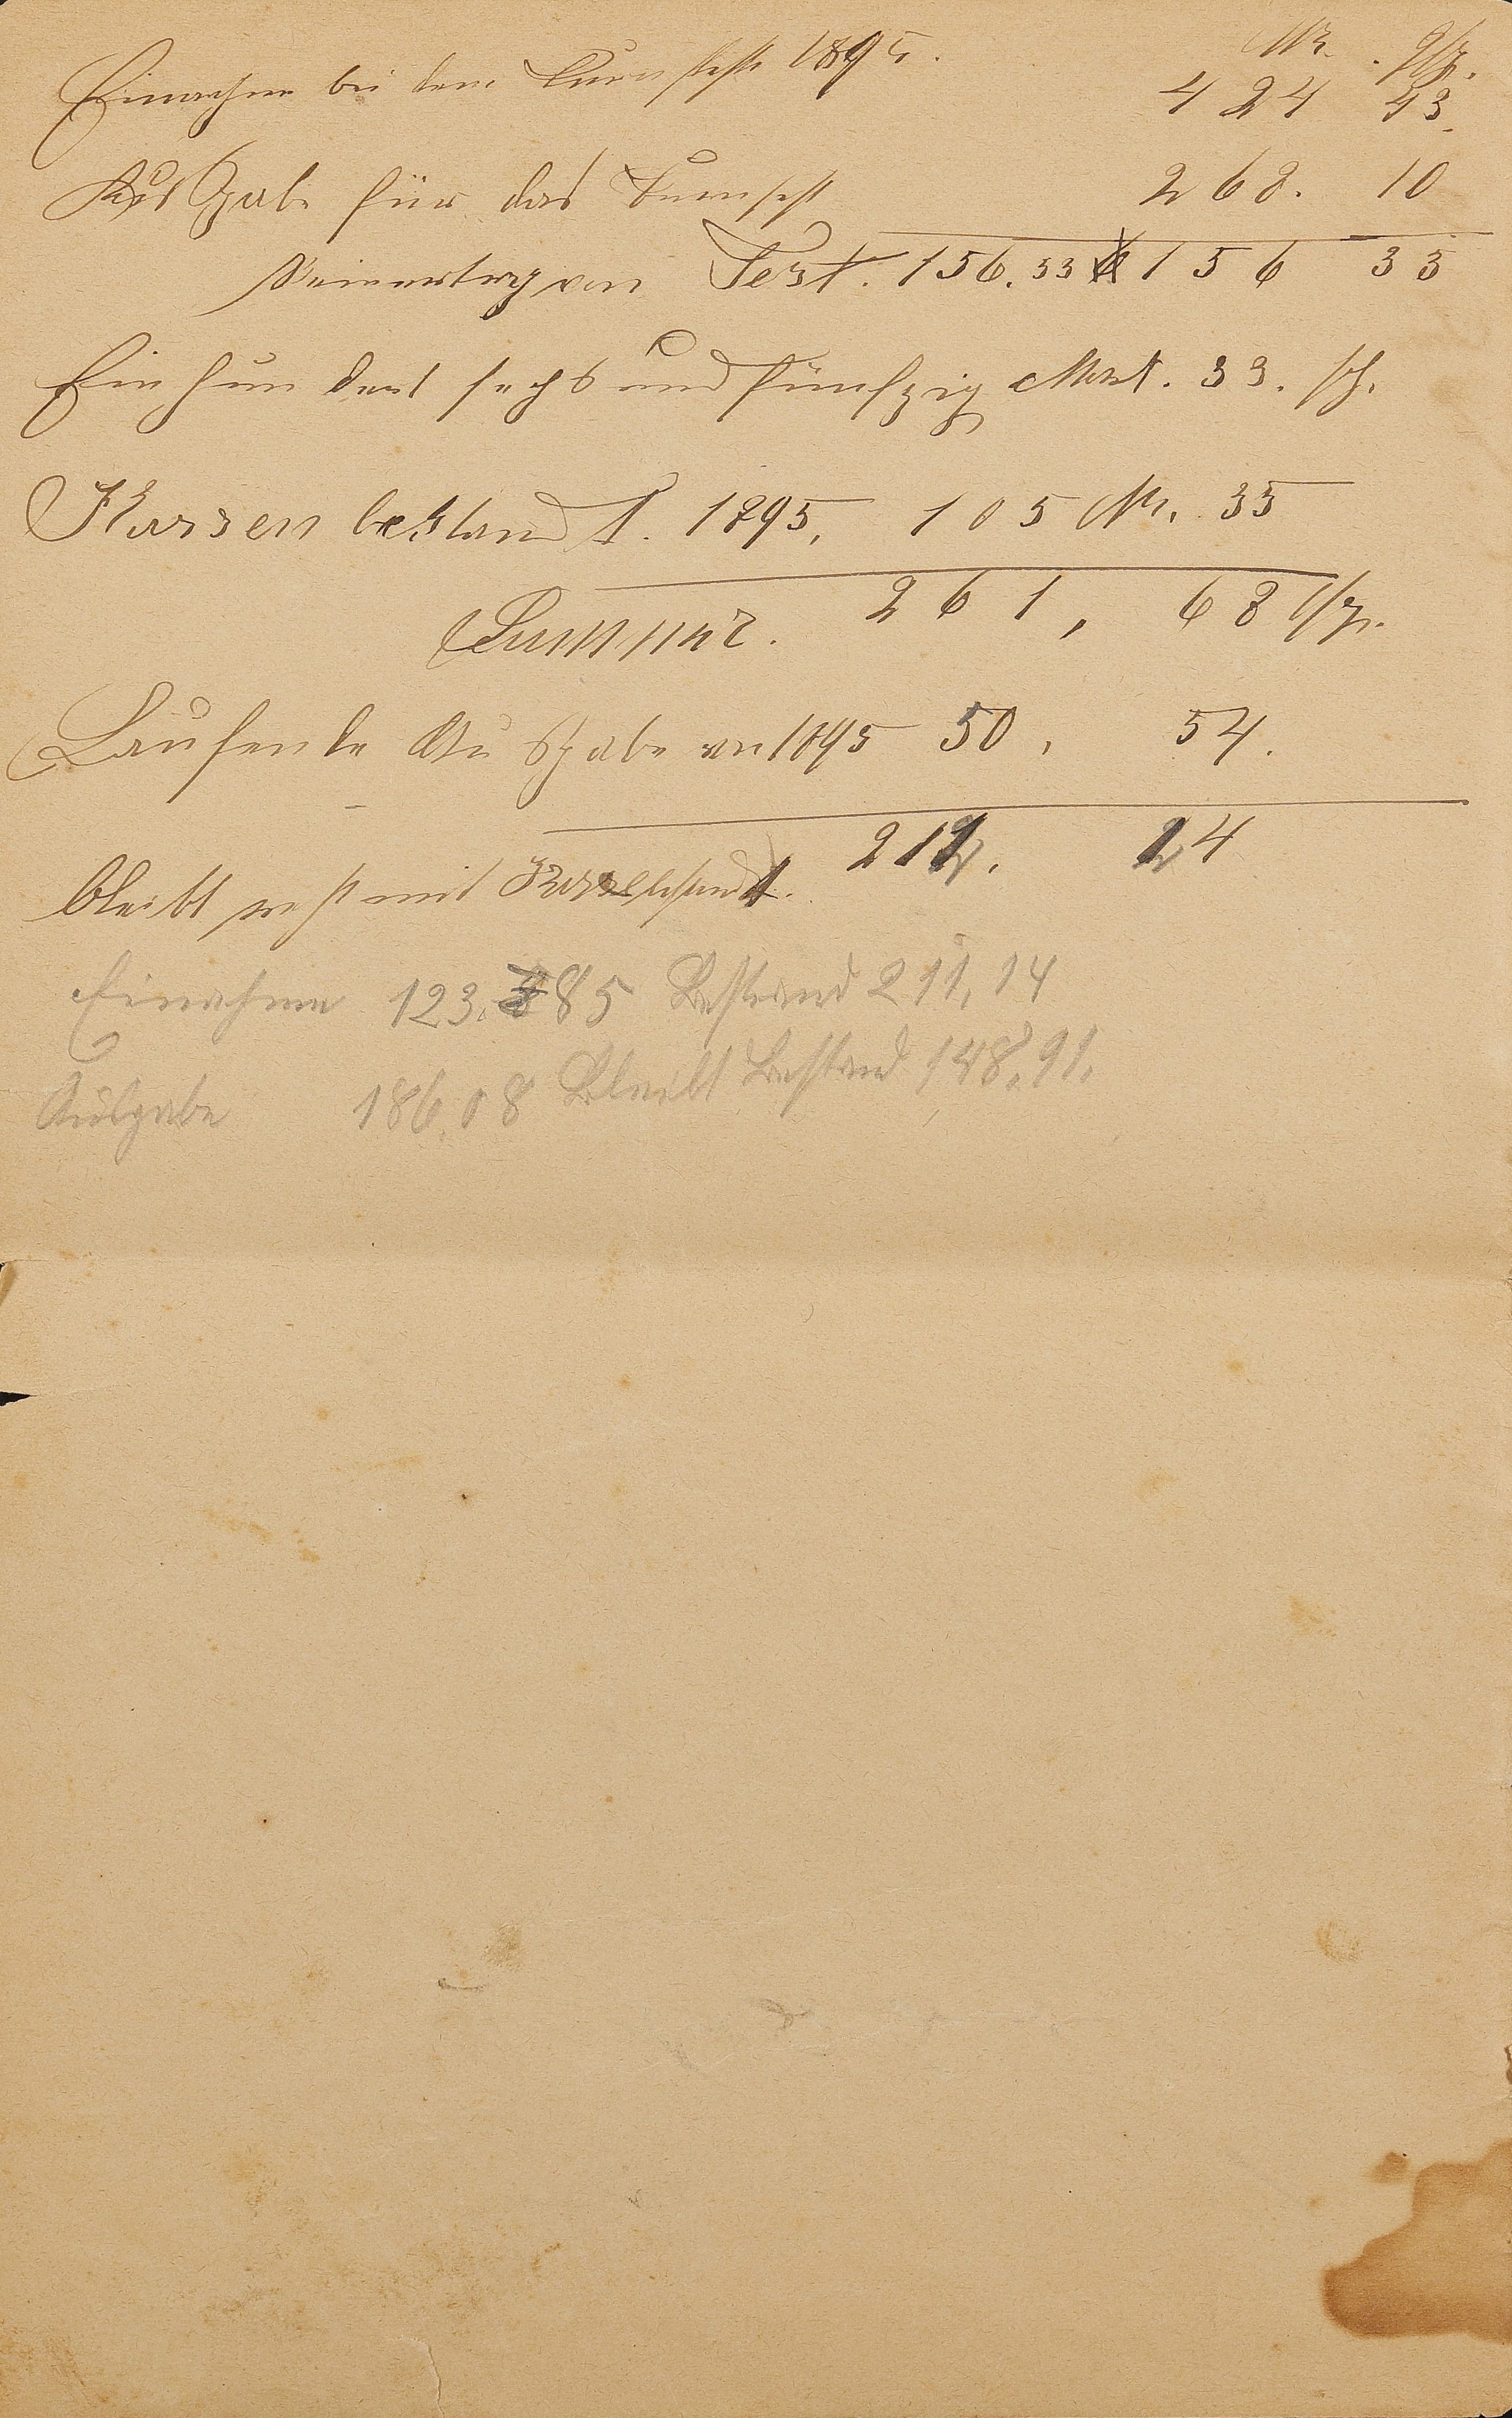 Mk. Pfg.
Einnahme bei dem Turnfeste 1895. 424 43.
Ausgabe für das Turnfest 268. 10
Reinertrag von Fest. 156.33 156 33
Ein hundert sechs und fünfzig Markt. 33. Pf.
Kassen bestandt. 1895, 105 M. 35
Summe. 261, 68 Pfg.
Laufende Ausgabe von 1895 50, 54.
bleibt mit Kassebestandt. 211. 14
Einahme 123.85 Bestand 211,14
Ausgabe 186,08 Bleibt Bestand 148,91.